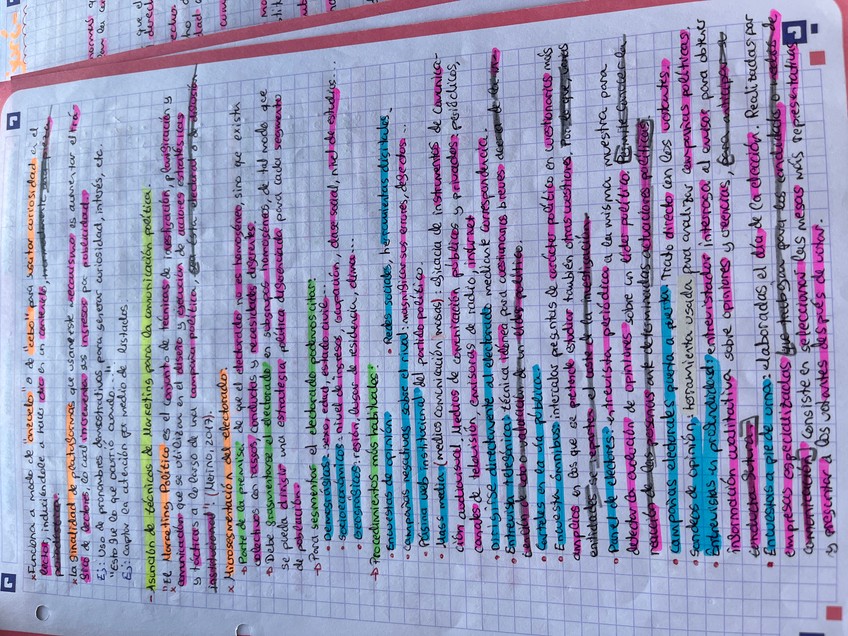 * Funciona a modo de "anzuelo" o de "cebo" para suscitar curiosidad en el
lector, induciéndole a hacer clic en un contenido,
* La finalidad de plataformas que usan este recurso es aumentar el trá-
fico de lectores, lo cual incrementa sus ingresos por publicidad.
Ej: Uso de pronombres demostrativos para generar curiosidad, interés, etc.
"Esto de lo que ocurrió cuando..."
Ej: Captar la atención por medio de listados.
- Asunción de técnicas de Marketing para la comunicación política:
* "El Marketing Político es el conjunto de técnicas de investigación, planificación y
comunicación que se utilizan en el diseño y ejecución de acciones estratégicas
y tácticas a lo largo de una campaña política, sea ésta electoral o de difusión
institucional" (Merino, 2017).
* Microsegmentación del electorado:
→ Parte de la premisa de que el electorado no es homogéneo, sino que existen
colectivos con rasgos, conductas y necesidades diferentes.
→ Debe fragmentarse el electorado en subgrupos homogéneos, de tal modo que
se pueda dirigir una estrategia política diferenciada para cada segmento
de población.
→ Para segmentar el electorado podemos citar:
• Demográficos: sexo, edad, estado civil...
• Socioeconómicos: nivel de ingresos, ocupación, clase social, nivel de estudios...
• Geográficos: región, lugar de residencia, clima...
→ Procedimientos más habituales:
• Encuestas de opinión. • Redes sociales, herramientas digitales.
• Campañas negativas sobre el rival: magnificar sus errores, defectos...
• Página web institucional del partido político.
• Mass media (medios comunicación masas): eficacia de instrumentos de comunica-
ción audiovisual, medios de comunicación públicos y privados, periódicos,
canales de televisión, emisoras de radio, internet
• Dirigirse directamente al electorado mediante correspondencia.
• Entrevista telefónica: técnica idónea para cuestionarios breves
de un líder político
• Carteles en la vía pública.
• Encuesta ómnibus: intercalar preguntas de carácter político en cuestionarios más
amplios en los que se pretende estudiar también otras cuestiones.
entidades se reparten el coste de la investigación.
• Panel de electores: entrevista periódica a la misma muestra para
detectar la evolución de opiniones sobre un líder político. Permite conocer la
reacción de las personas ante determinadas actuaciones políticas.
• Campañas electorales puerta a puerta. Trato directo con los votantes.
• Sondeos de opinión, herramienta usada para analizar campañas políticas.
• Entrevistas en profundidad: entrevistador interroga al elector para obtener
información cualitativa sobre opiniones y creencias,
• Encuestas a pie de urna: elaboradas el día de la elección. Realizadas por
empresas especializadas que trabajan para las entidades o medios de
comunicación, consiste en seleccionar las mesas más representativas
y preguntar a los votantes después de votar.